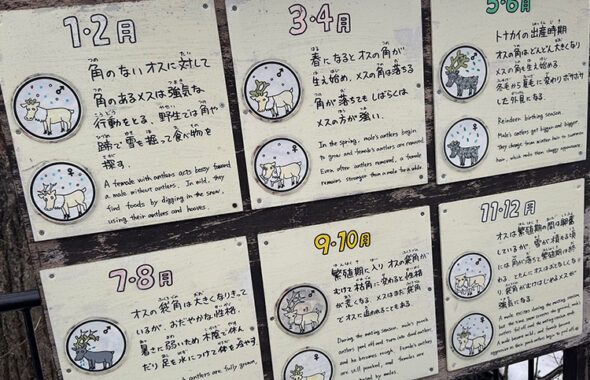 1・2月
角のないオスに対して
角のあるメスは強気な
行動をとる。野生では角や
蹄で雪を掘って食べ物を
探す。
A female with antlers acts bossy toward
a male without antlers. In wild, they
find foods by digging in the snow,
using their antlers and hooves.
3・4月
春になるとオスの角が
生え始め、メスの角は落ちる
角が落ちても しばらくは
メスの方が強い。
In the spring, male's antlers begin
to grow and female's antlers are removed.
Even after antlers removed, a female
remains stronger than a male for a while.
5・6月
トナカイの出産時期
オスの角はどんどん大きくなり
メスの角も生え始める。
冬毛から夏毛に変わりボサボサ
した外見になる。
Reindeer birthing season.
Male's antlers get bigger and bigger.
They change from winter hair to summer
hair, which make them shaggy appearance.
7・8月
オスの袋角は大きくなりきって
いるが、おだやかな性格。
暑さに弱いため木陰で休ん
だり足を水につけて体を冷やす
antlers are fully grown,
9・10月
繁殖期に入りオスの袋角が
むけて枯角に変わると性格
が荒くなる。メスはまだ袋角
でオスに追われることもある。
During the mating season, male's pouch
antlers peel off and turn into dead antlers,
and he becomes rough. Female's antlers
are still pouched, and females are
by males.
11・12月
オスは繁殖期の間は興奮
しているが、雪が積もる頃
には角が落ちて繁殖期は終
わる。とたんにオスはおとなしくなり
枯角がむけはじめるメスが
強気になる。
A male excites during the mating season,